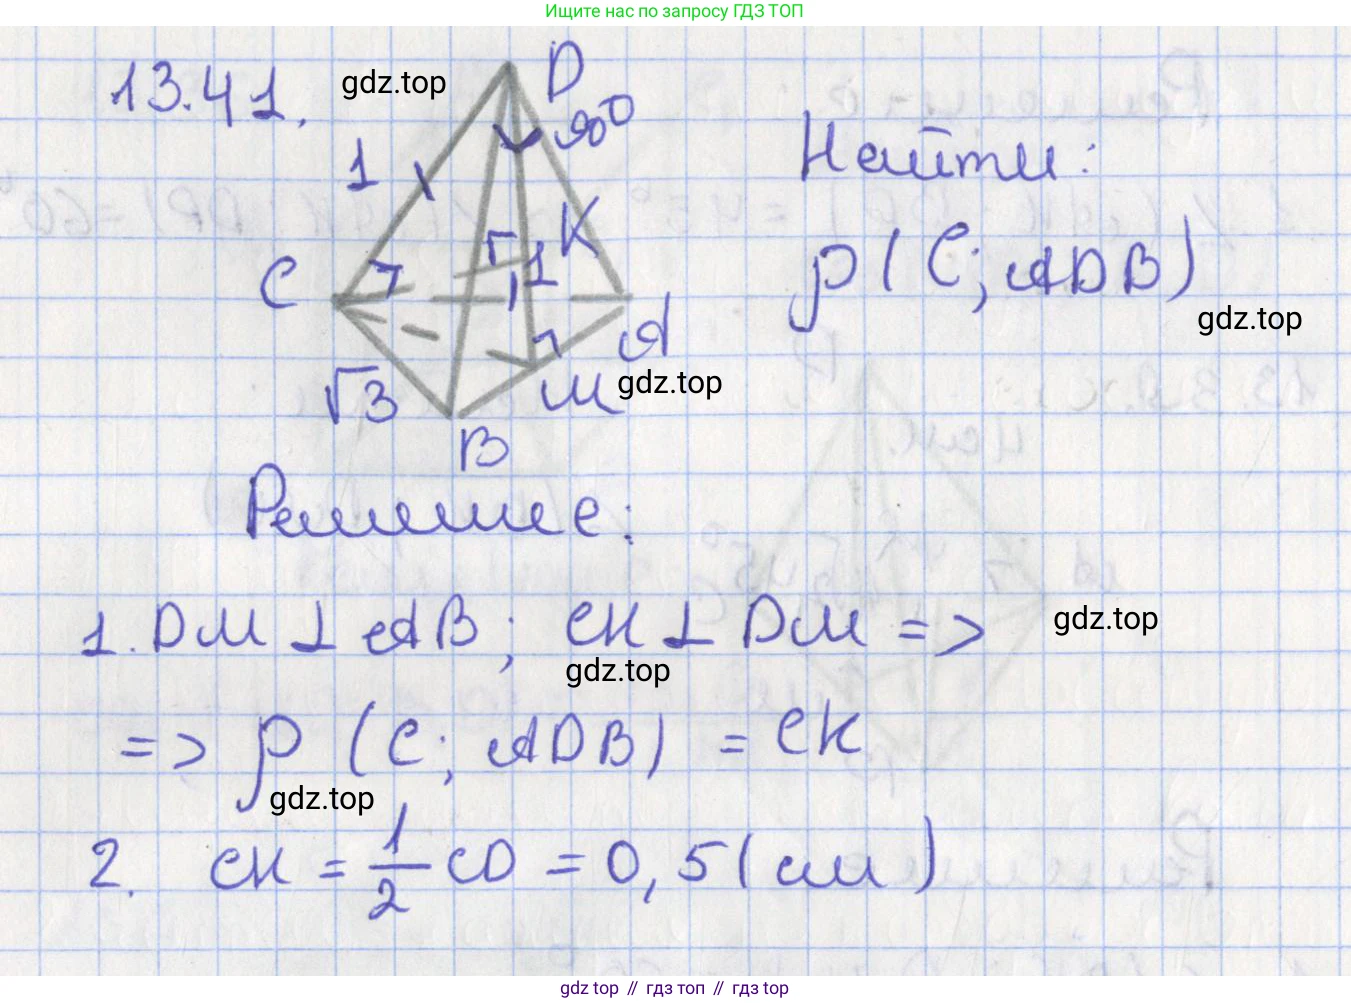 Ищите нас по запросу ГДЗ ТОП
13.41.
gdz.top
D
90°
1
Найти:
K
C
1
ρ(C; ADB)
gdz.top
A
√3
M
gdz.top
B
Решение:
1. DM ⊥ AB; CK ⊥ DM =>
gdz.top
gdz.top
=> ρ (C; ADB) = CK
gdz.top
2. CK = 1/2 CD = 0,5 (см)
gdz top // гдз топ // gdz top